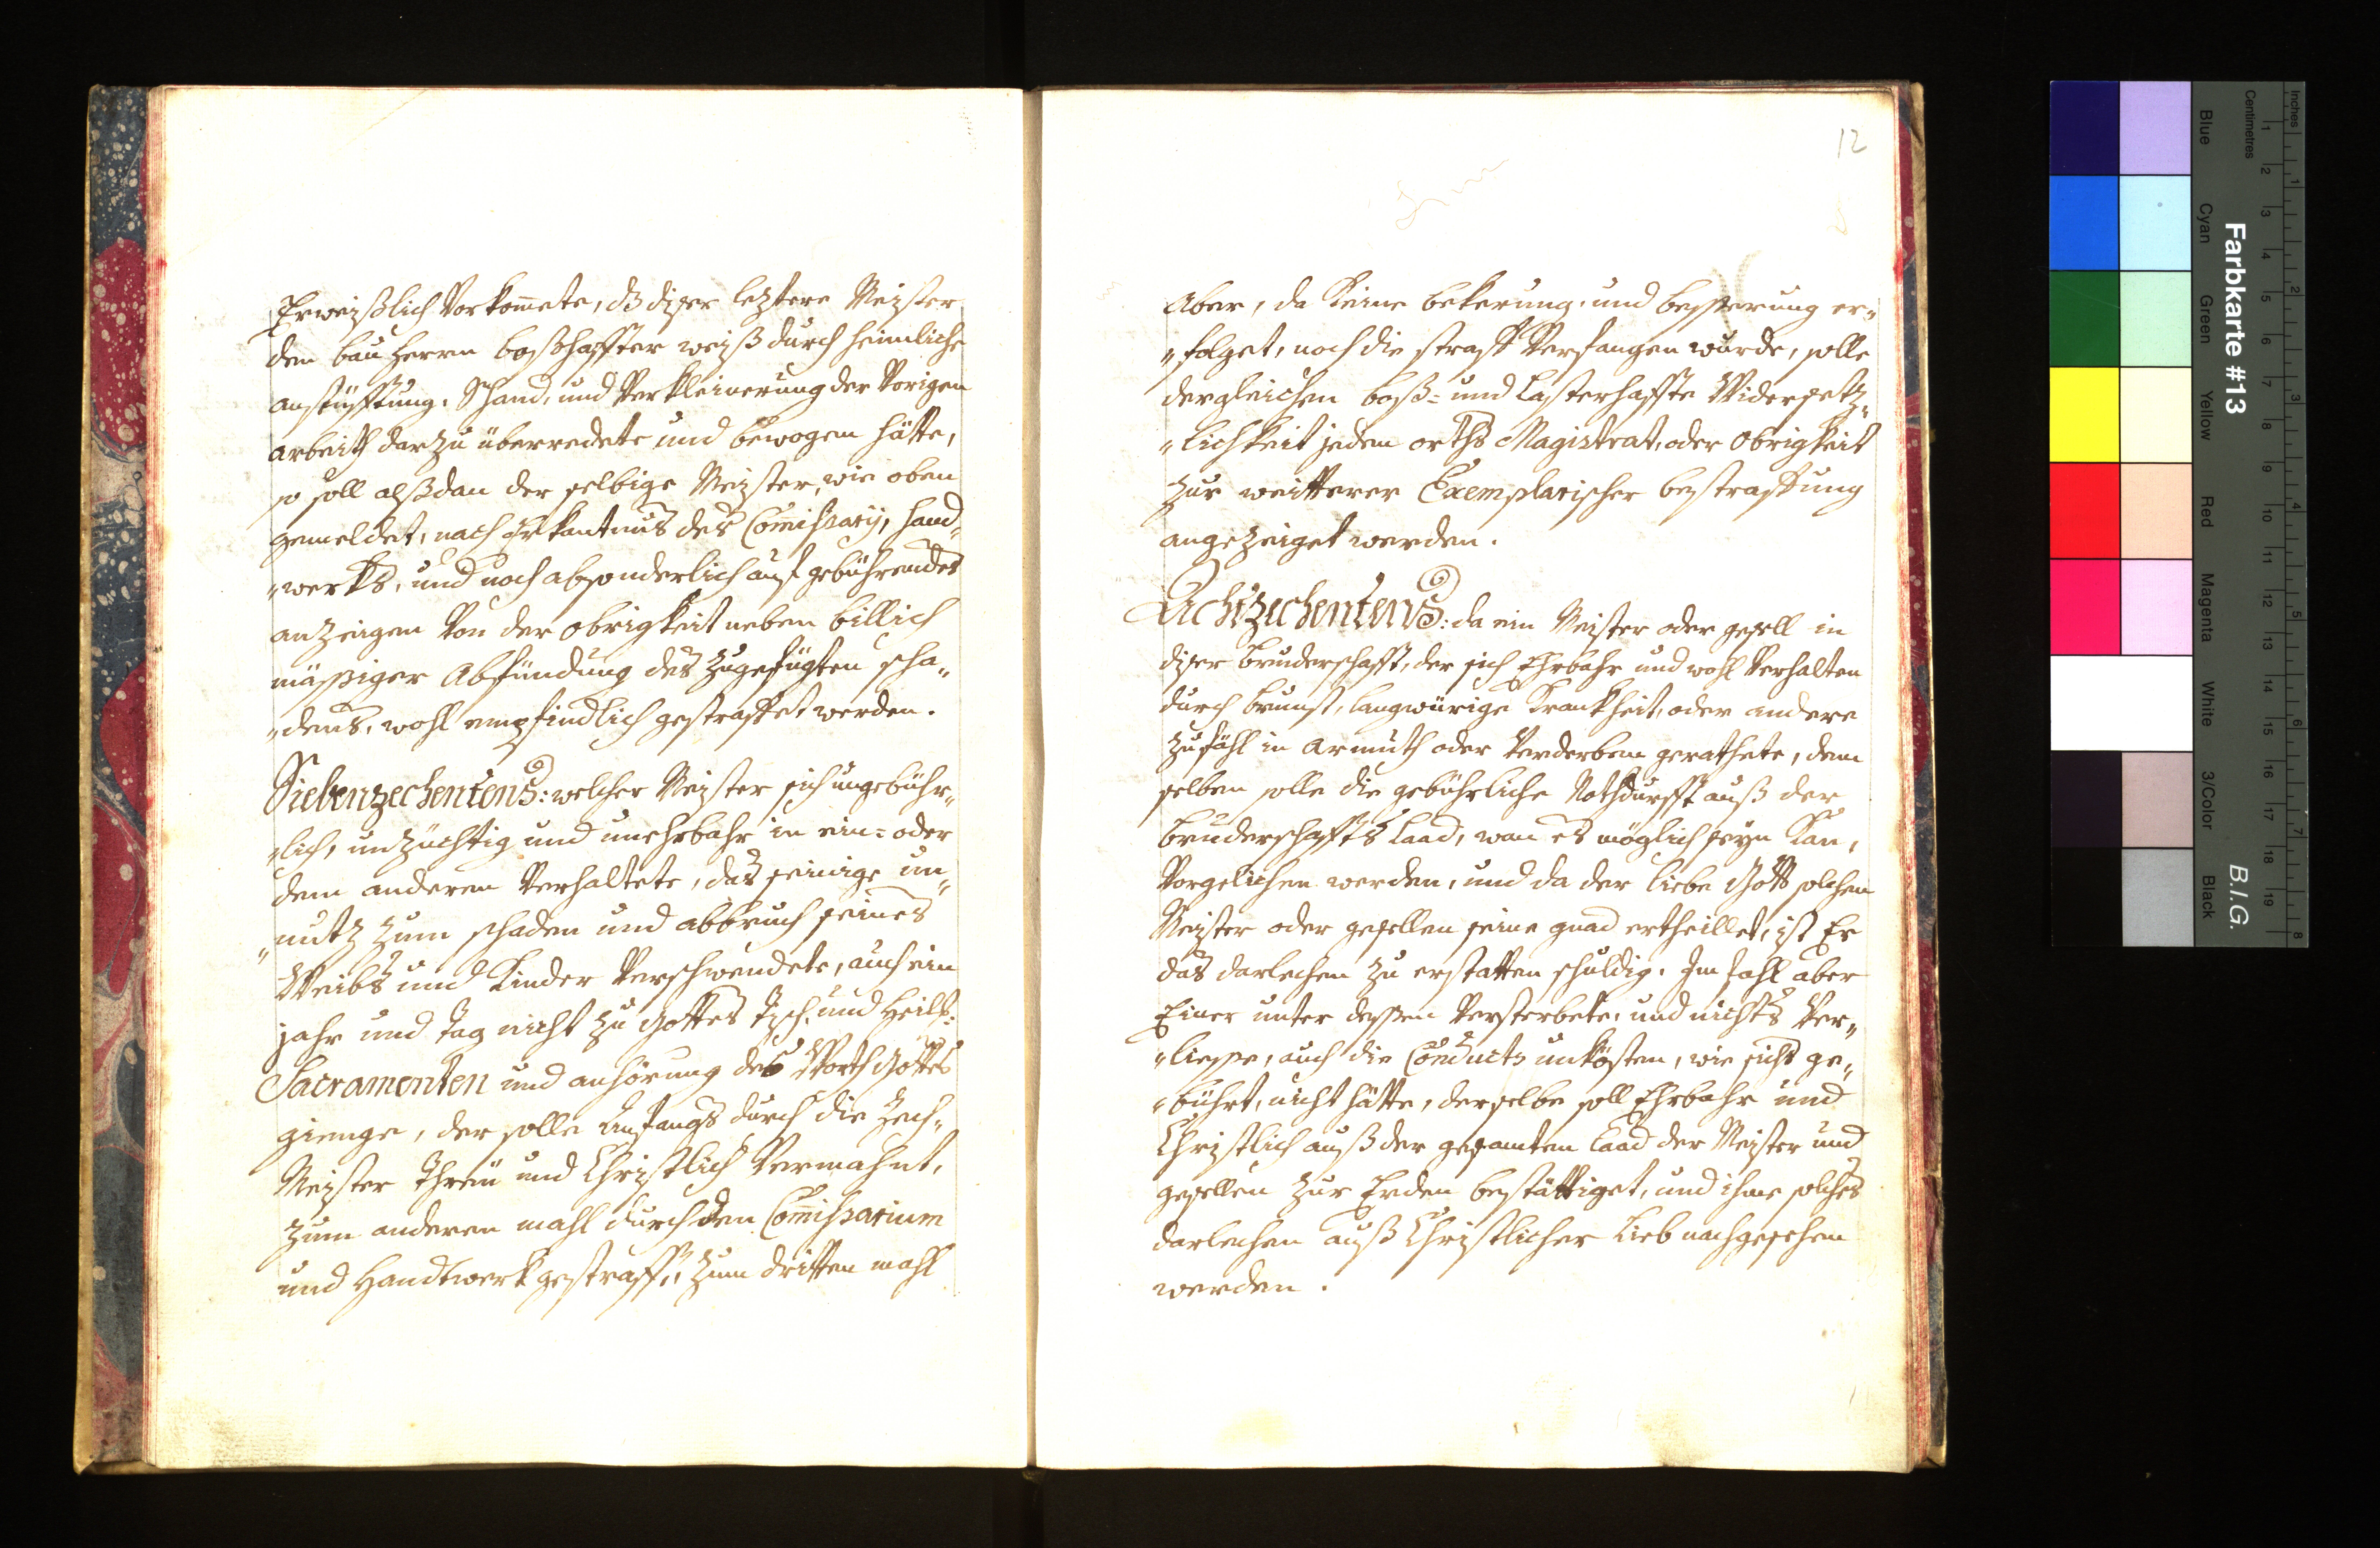 Erweißlich Vorkom̄ete, dß diser leztere Meister
den bau Herrn boßhaffter weiß durch heimliche
anstüfftung, Schand, und Verkleinerung der Vorigen
arbeith darzu überredete und bewogen hätte,
so soll alßdan der selbige Meister, wie oben
gemeldet, nach Erkantnus des Com̄issarij, Hand„
„werks, und noch absonderlich auf gebührendes
anzeigen Von der obrigkeit neben billich
mässiger Abfündung des zugefügten scha„
„dens, wohl empfindlich gestraffet werden.
Siebenzechentens: welcher Meister sich ungebühr„
„lich, unzüchtig und unehrbahr in ein= oder
dem anderen Verhaltete, das seinige un„
„nutz zum schaden und abbruch seines
Weibs und Kinder Verschwendete, auch ein
jahr und Tag nicht zu Gottes Tisch, und Heil:
Sacramenten und anhörung des Worth Gottes
gienge, der solle Anfangs durch die Zech„
Meister Threu und Christlich Vermahnt,
zum anderen mahl durch den Com̄issarium
und Handtwerk gestrafft, zum dritten mahl
12
Aber, da keine bekerung, und besserung er„
„folget, noch die straff Verfangen wurde, solle
dergleichen boß= und Lasterhaffte Widersetz„
„lichkeit jeden orths Magistrat, oder Obrigkeit
zur weitterer Exemplarischer bestraffung
angezeiget werden.
Achtzechentens: da ein Meister oder gesell in
diser bruderschafft, der sich Ehrbahr und wohl Verhalten
durch brunst, langwürige Krankheit, oder andere
zufähl in armuth oder Verderben gerathete, dem
selben solle die gebührliche Nothdurfft auß der
bruderschaffts Laad, wan es möglich seyn kan,
Vorgelichen werden, und da der liebe Gott solchen
Meister oder gesellen seine gnad ertheillet, ist Er
das darlechen zu erstatten schuldig. Im fahl aber
Einer unter dessen Versterbete, und nichts Ver„
„liesse, auch die Conducts unkösten, wie sichs ge„
„bührt, nicht hätte, derselbe soll Ehrbahr und
Christlich auß der gesamten Laad der Meister und
gesellen zur Erden bestättiget, und ihme solches
darlechen auß Christlicher Lieb nachgesehen
werden.
Farbkarte #13
B.I.G.
Inches
Centimetres
Blue
Cyan
Green
Yellow
Red
Magenta
White
3/Color
Black
1 2 3 4 5 6 7 8 9 10 11 12 13 14 15 16 17 18 19
1 2 3 4 5 6 7 8